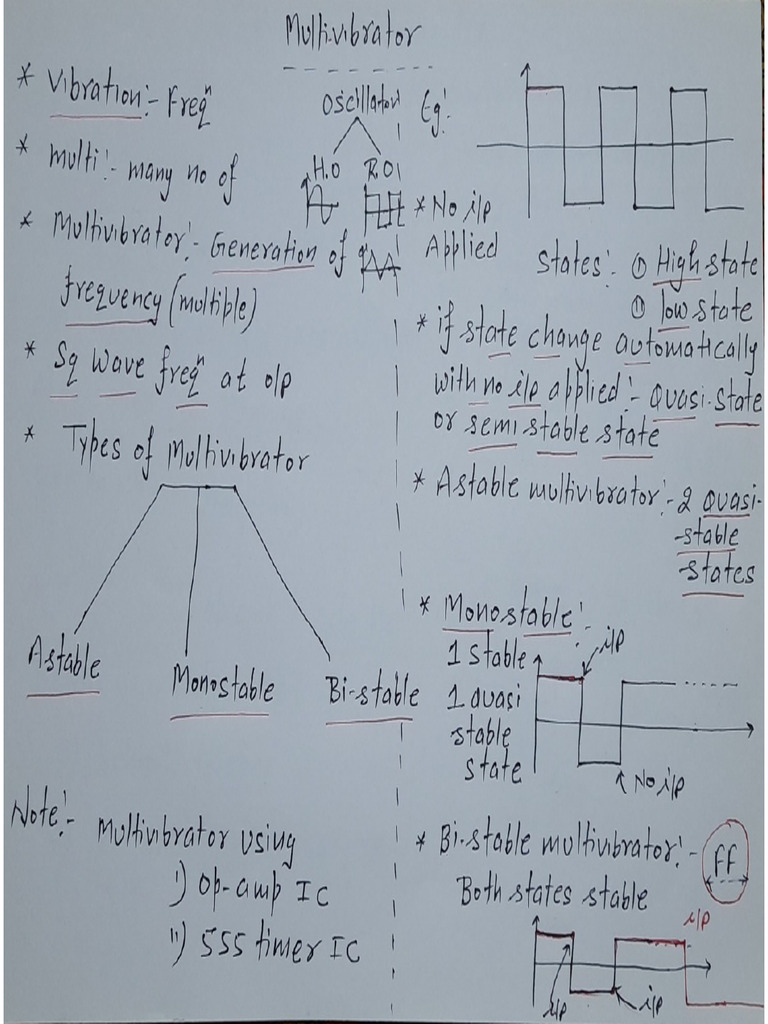 Multivibrator
* Vibration:- Freqⁿ
* Multi:- many no of
* Multivibrator:- Generation of
frequency (multiple)
* Sq Wave freqⁿ at o/p
* Types of Multivibrator
Astable
Monostable
Bi-stable
Note:- Multivibrator using
i) Op-amp IC
ii) 555 timer IC
Oscillator
H.O R.O
Eg:-
* No i/p
Applied
States:- ① High state
① low state
* if state change automatically
with no i/p applied:- Quasi-State
or semi stable state
* Astable multivibrator:- 2 Quasi-
-stable
-states
* Monostable:-
1 Stable
1 Quasi
-stable
state
i/p
No i/p
* Bi-stable multivibrator:- FF
Both states stable
i/p
i/p
i/p